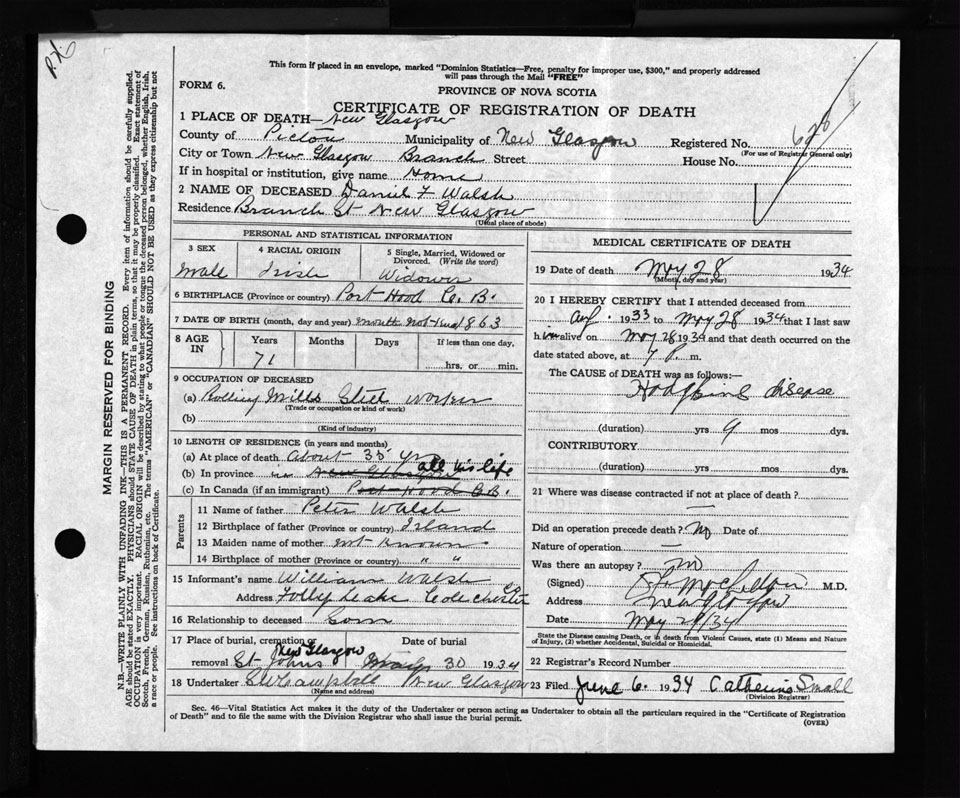 This form if placed in an envelope, marked "Dominion Statistics—Free, penalty for improper use, $300," and properly addressed
will pass through the Mail "FREE"
FORM 6.
PROVINCE OF NOVA SCOTIA
CERTIFICATE OF REGISTRATION OF DEATH
1 PLACE OF DEATH— New Glasgow
County of Pictou Municipality of New Glasgow Registered No.
(For use of Registrar General only)
City or Town New Glasgow Branch Street House No.
If in hospital or institution, give name Home
2 NAME OF DECEASED Daniel F Walsh
Residence Branch St New Glasgow
(Usual place of abode)
PERSONAL AND STATISTICAL INFORMATION
3 SEX 4 RACIAL ORIGIN 5 Single, Married, Widowed or
Divorced. (Write the word)
Male Irish Widower
6 BIRTHPLACE (Province or country) Port Hood C. B.
7 DATE OF BIRTH (month, day and year) month not 1863
8 AGE IN Years Months Days If less than one day,
71 hrs. or min.
9 OCCUPATION OF DECEASED
(a) Rolling Mills Steel Worker
(Trade or occupation or kind of work)
(b)
(Kind of industry)
10 LENGTH OF RESIDENCE (in years and months)
(a) At place of death about 35 yr
(b) In province in New Glasgow all his life
(c) In Canada (if an immigrant) Port Hood C.B.
Parents
11 Name of father Peter Walsh
12 Birthplace of father (Province or country) Island
13 Maiden name of mother not known
14 Birthplace of mother (Province or country) " "
15 Informant's name William Walsh
Address Folly Lake Colchester Co
16 Relationship to deceased Son
17 Place of burial, cremation or Date of burial
New Glasgow
removal St Johns May 30 1934
18 Undertaker Campbell New Glasgow
(Name and address)
MEDICAL CERTIFICATE OF DEATH
19 Date of death May 28 1934
(Month, day and year)
20 I HEREBY CERTIFY that I attended deceased from
1933 to May 28 1934 that I last saw
him alive on May 28 1934 and that death occurred on the
date stated above, at 7 P. m.
The CAUSE of DEATH was as follows:—
Hodgkins disease
(duration) yrs 9 mos. dys.
CONTRIBUTORY
(duration) yrs. mos. dys.
21 Where was disease contracted if not at place of death?
—
Did an operation precede death? No Date of
Nature of operation —
Was there an autopsy? no
(Signed) M.D.
Address New Glasgow
Date May 29/34
State the Disease causing Death, or in death from Violent Causes, state (1) Means and Nature
of Injury, (2) whether Accidental, Suicidal or Homicidal.
22 Registrar's Record Number
23 Filed June 6. 1934 Catherine Small
(Division Registrar)
Sec. 46—Vital Statistics Act makes it the duty of the Undertaker or person acting as Undertaker to obtain all the particulars required in the "Certificate of Registration
of Death" and to file the same with the Division Registrar who shall issue the burial permit.
(OVER)
MARGIN RESERVED FOR BINDING
N.B.—WRITE PLAINLY WITH UNFADING INK—THIS IS A PERMANENT RECORD. Every item of information should be carefully supplied.
AGE should be stated EXACTLY. PHYSICIANS should STATE CAUSE OF DEATH in plain terms, so that it may be properly classified. Exact statement of
OCCUPATION is very important. RACIAL ORIGIN will be described by stating to what people or tongue the deceased person belonged, whether English, Irish,
Scotch, French, German, Russian, Ruthenian, etc. The terms "AMERICAN" or "CANADIAN" SHOULD NOT BE USED as they express citizenship but not
a race or people. See instructions on back of Certificate.